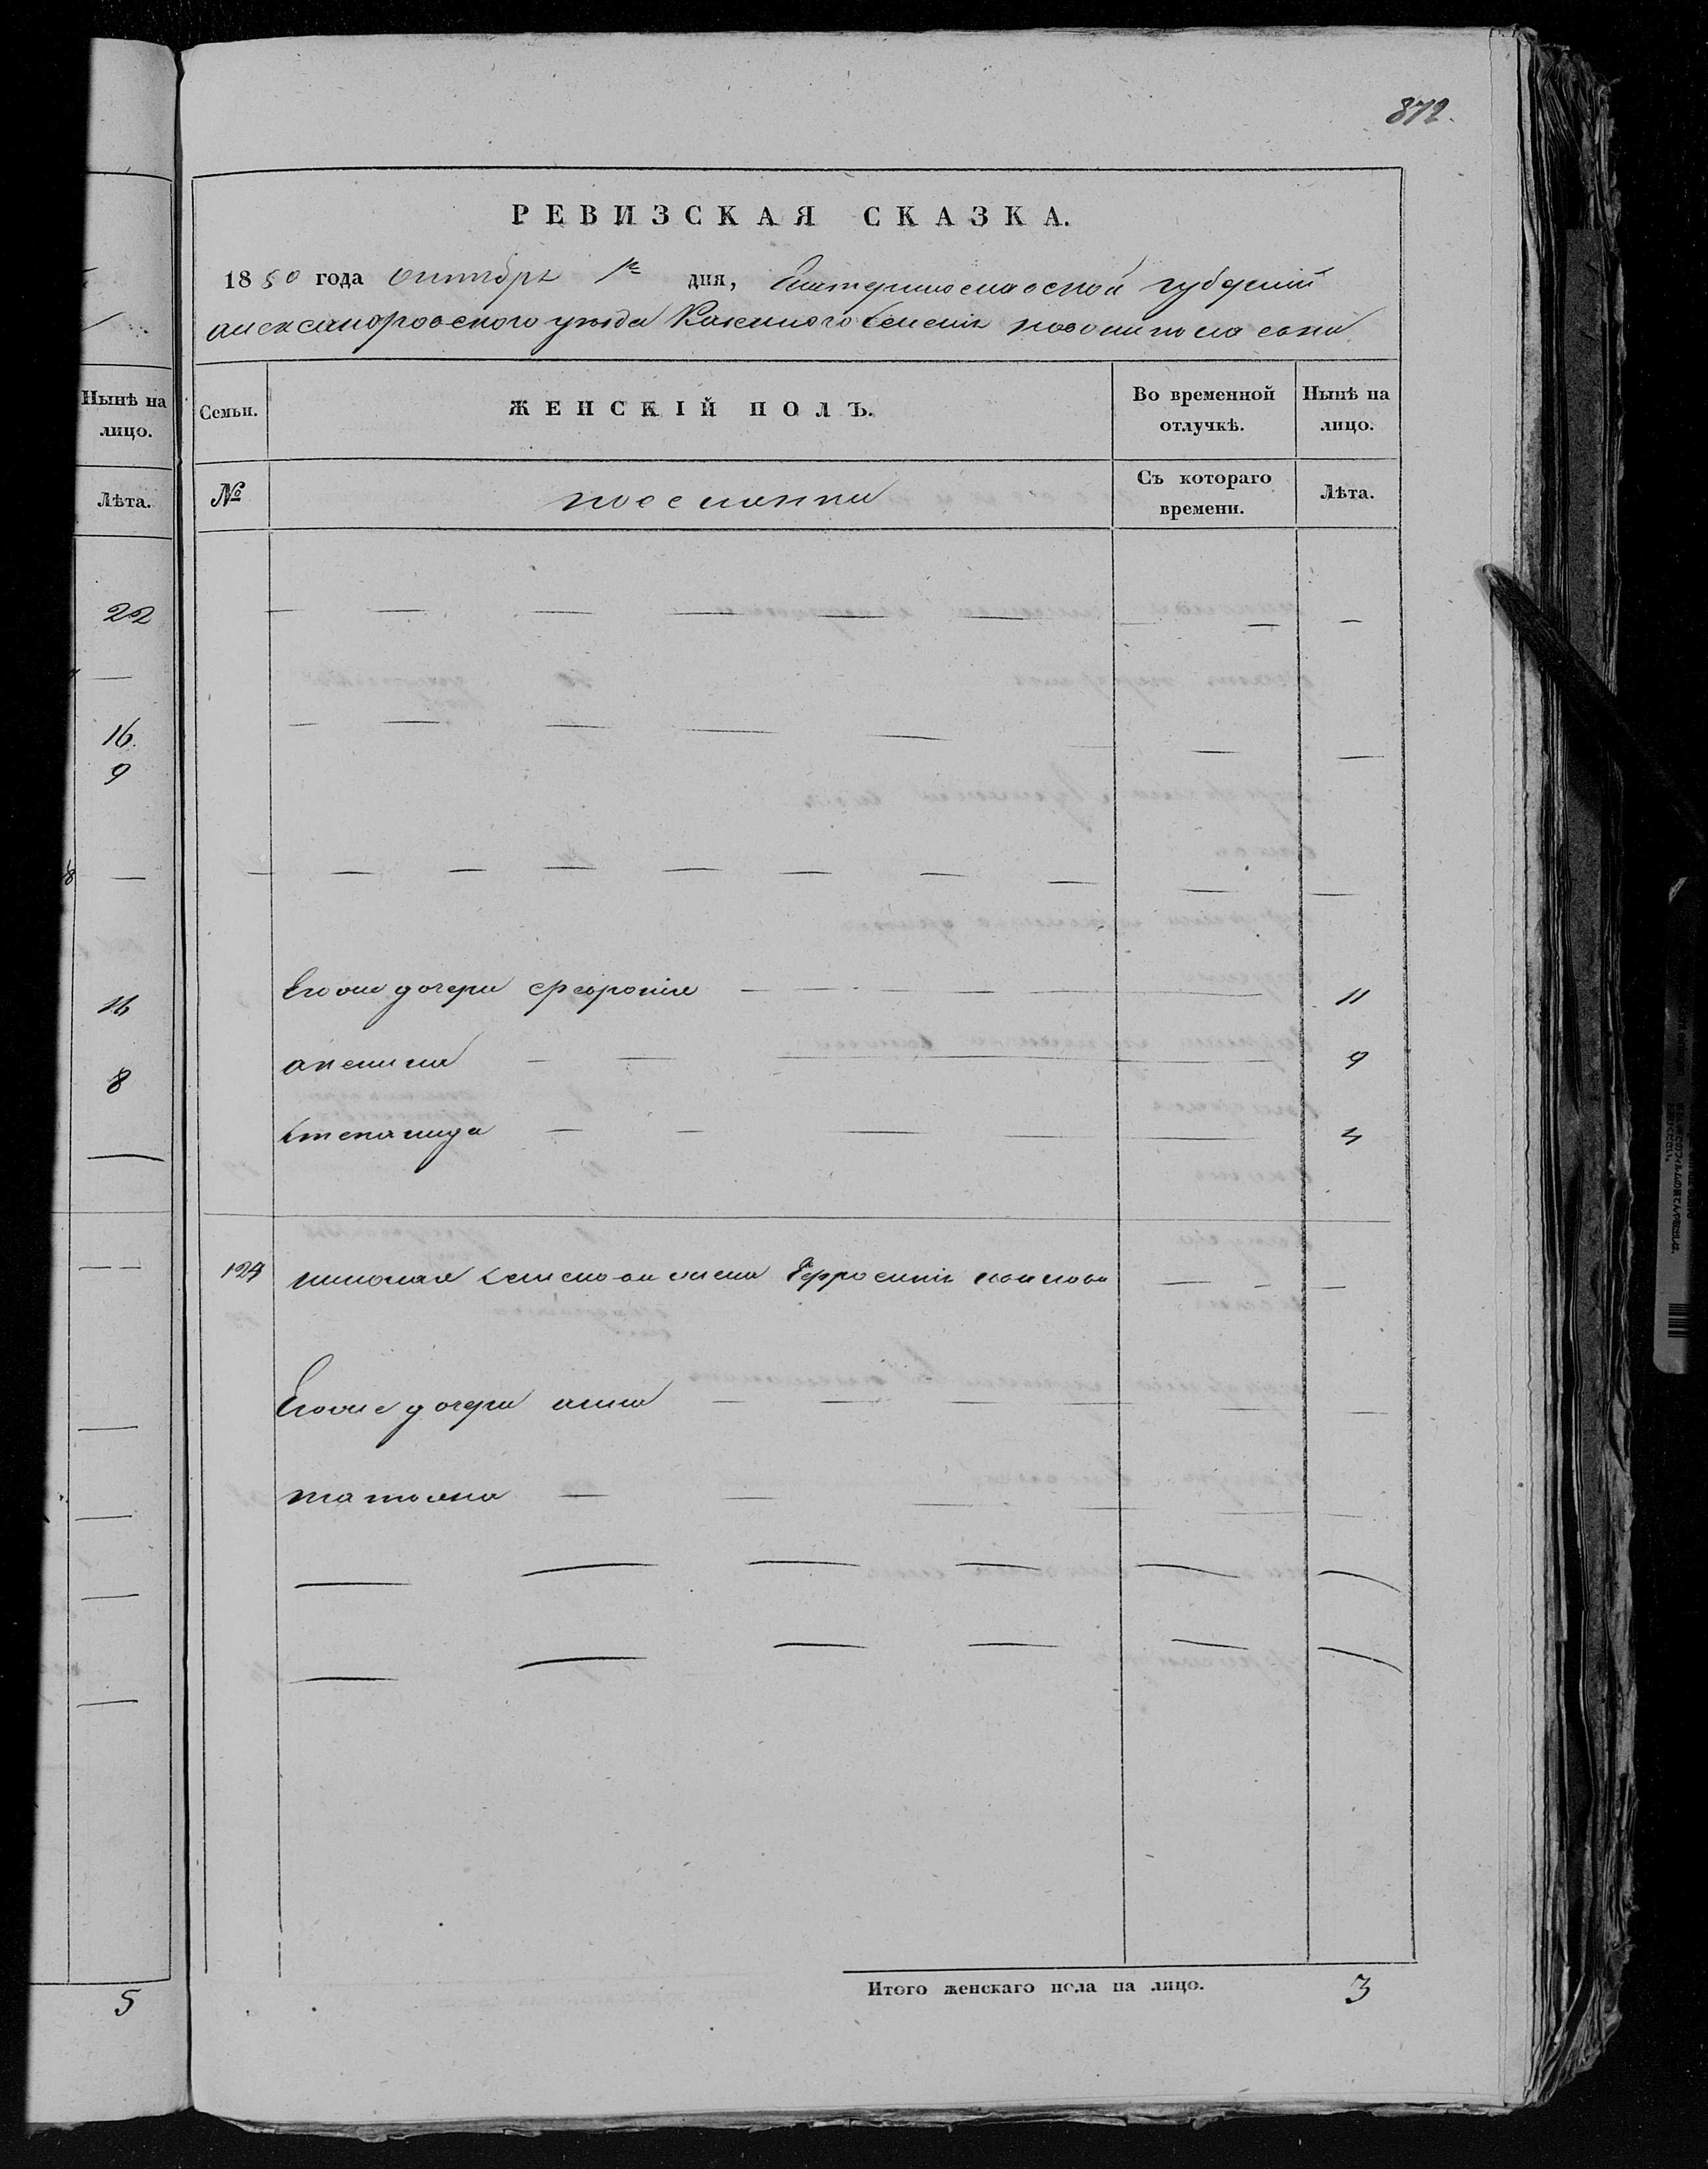 872.
РЕВИЗСКАЯ СКАЗКА.
1850 года октября 1го дня, Екатеринославской губернии
александровского уезда Казенного Селения новониколаевки
Нынѣ на лицо.
Семьи.
ЖЕНСКІЙ ПОЛЪ.
Во временной отлучкѣ.
Нынѣ на лицо.
Лѣта.
№
поселянки
Съ котораго времени.
Лѣта.
22
16.
9
Его дочери Феврония 11
16
акелина 9
8
степанида 4
124 николая жена Ефросиния
Его дочери анна
татьяна
5
Итого женскаго пола на лицо. 3